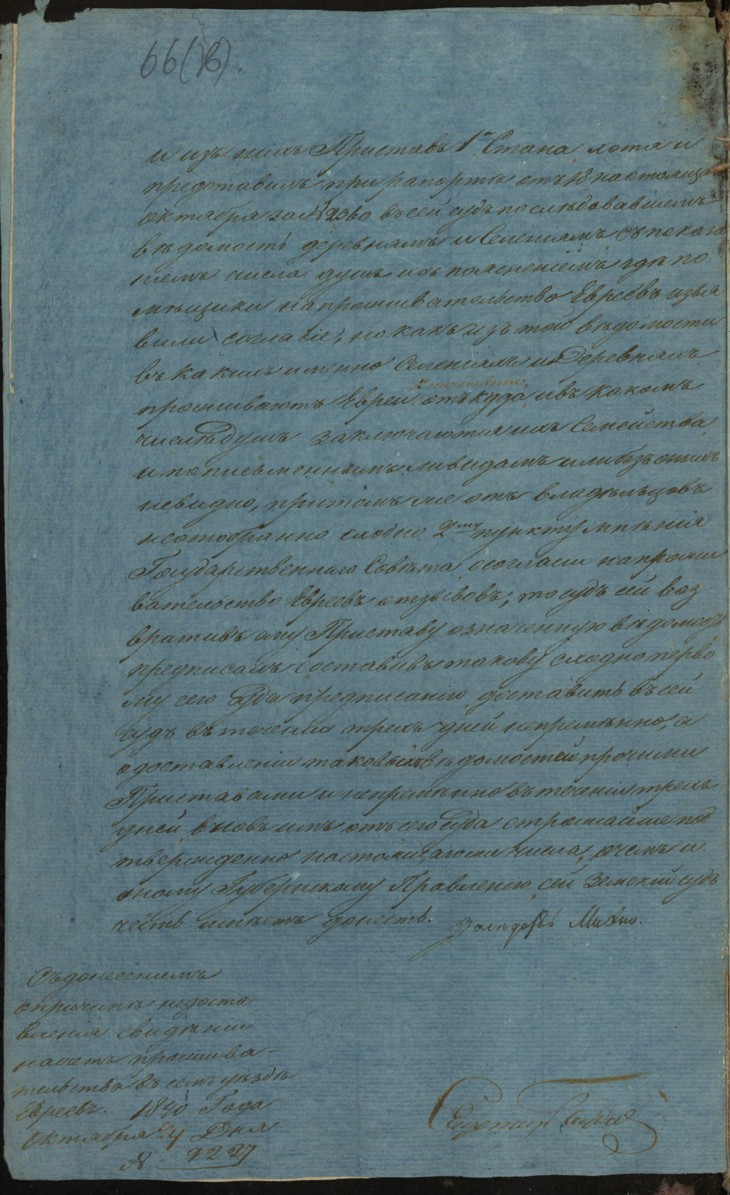 66(В)
и изъ нихъ Приставъ 1го Стана хотя и
представилъ при рапортѣ отъ 18 настоящаго
Октября за № 2360 въ сей судъ послѣдовавшемъ
вѣдомость деревнямъ и Селеніямъ съ показа
ніемъ числа душъ и съ поясненіемъ гдѣ по
мѣщики на проживательство Евреевъ изъя
вили согласіе, но какъ изъ той вѣдомости
въ какихъ именно Селеніяхъ и Деревняхъ
проживаютъ Евреи, откуда и въ какомъ
числѣ душъ заключаются ихъ Семейства
и по письменнымъ ли видамъ или безъ оныхъ
невидно, притомъ же отъ владѣльцовъ
неотобранно сходно 2му пункту мнѣнія
Государственнаго Совѣта о согласіи на прожи
вательство Евреевъ отзывовъ; то судъ сей воз
вративъ ему Приставу означенную вѣдомость
предписалъ составивъ такову сходно перво
му сего Суда предписанію доставить въ сей
судъ въ теченіи трехъ дней непремѣнно, а
о доставленіи таковыхъ вѣдомостей прочими
Приставами и непремѣнно въ теченіи трехъ
дней вновь имъ отъ сего Суда строжайше под
тверждено настоящаго числа, о чемъ и
оному Губернскому Правленію сей Земскій судъ
честь имѣетъ донесть.
Съ донесеніемъ
о причинѣ недоста
вленія свѣдѣній
насчетъ прожива-
тельства въ семъ уѣздѣ
Евреевъ. 1840 Года
Октября 24 Дня
№ 7227